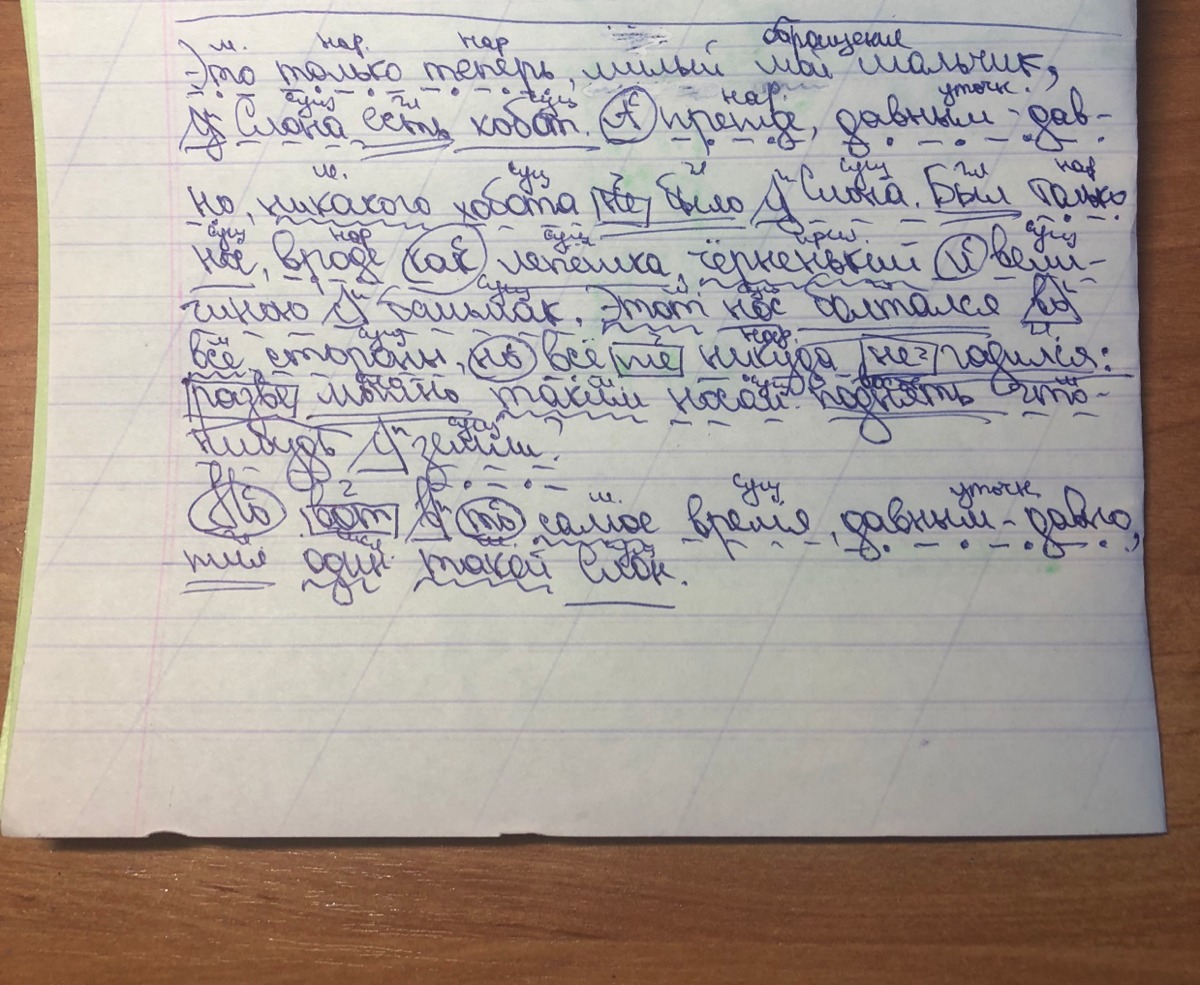 м. нар. нар обращение
Это только теперь, милый мой мальчик,
сущ гл сущ нар. уточн.
у Слона есть хобот. А прежде, давным-дав-
м. сущ ч гл п сущ гл нар
но, никакого хобота не было у Слона. Был только
сущ нар с сущ прил. с сущ
нос, вроде как лепёшка, чёрненький и вели-
п сущ
чиною у башмак. Этот нос болтался во
сущ ч нар.
все стороны, но всё же никуда не годился:
разве можно таким носом поднять что-
п сущ
нибудь у земли?
ч п м. сущ уточн
Но вот в то самое время, давным-давно,
жил один такой Слон.